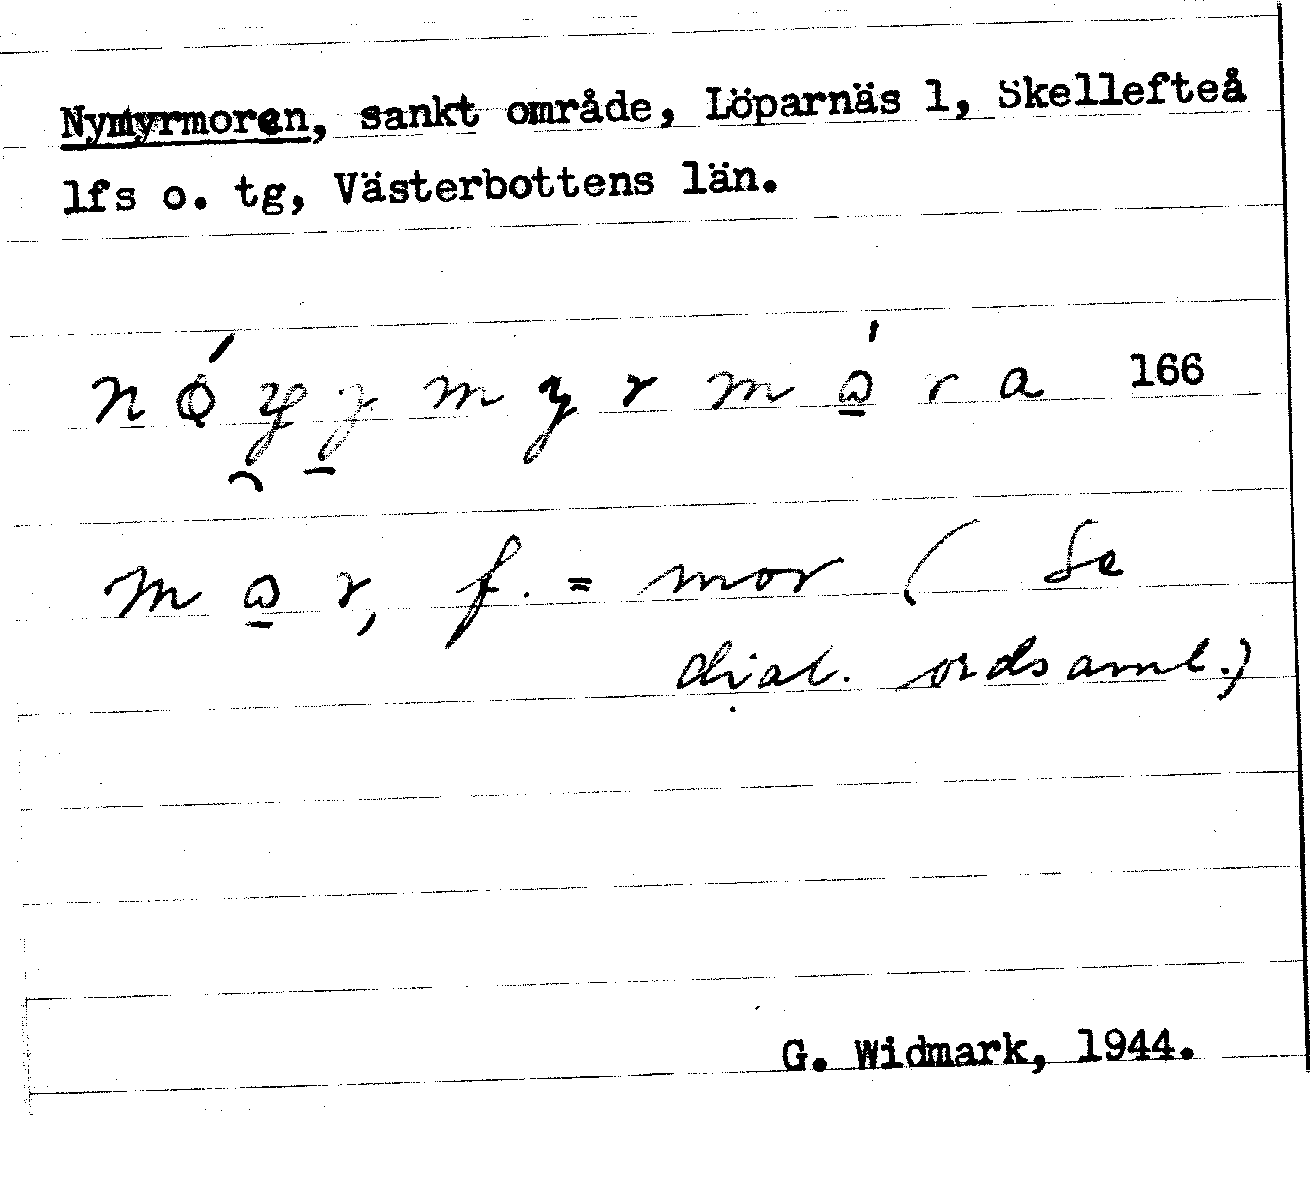 Nymyrmoren, sankt område, Löparnäs 1, Skellefteå
lfs o. tg, Västerbottens län.
166
f. = mor (Se
dial. ordsaml.)
G. Widmark, 1944.